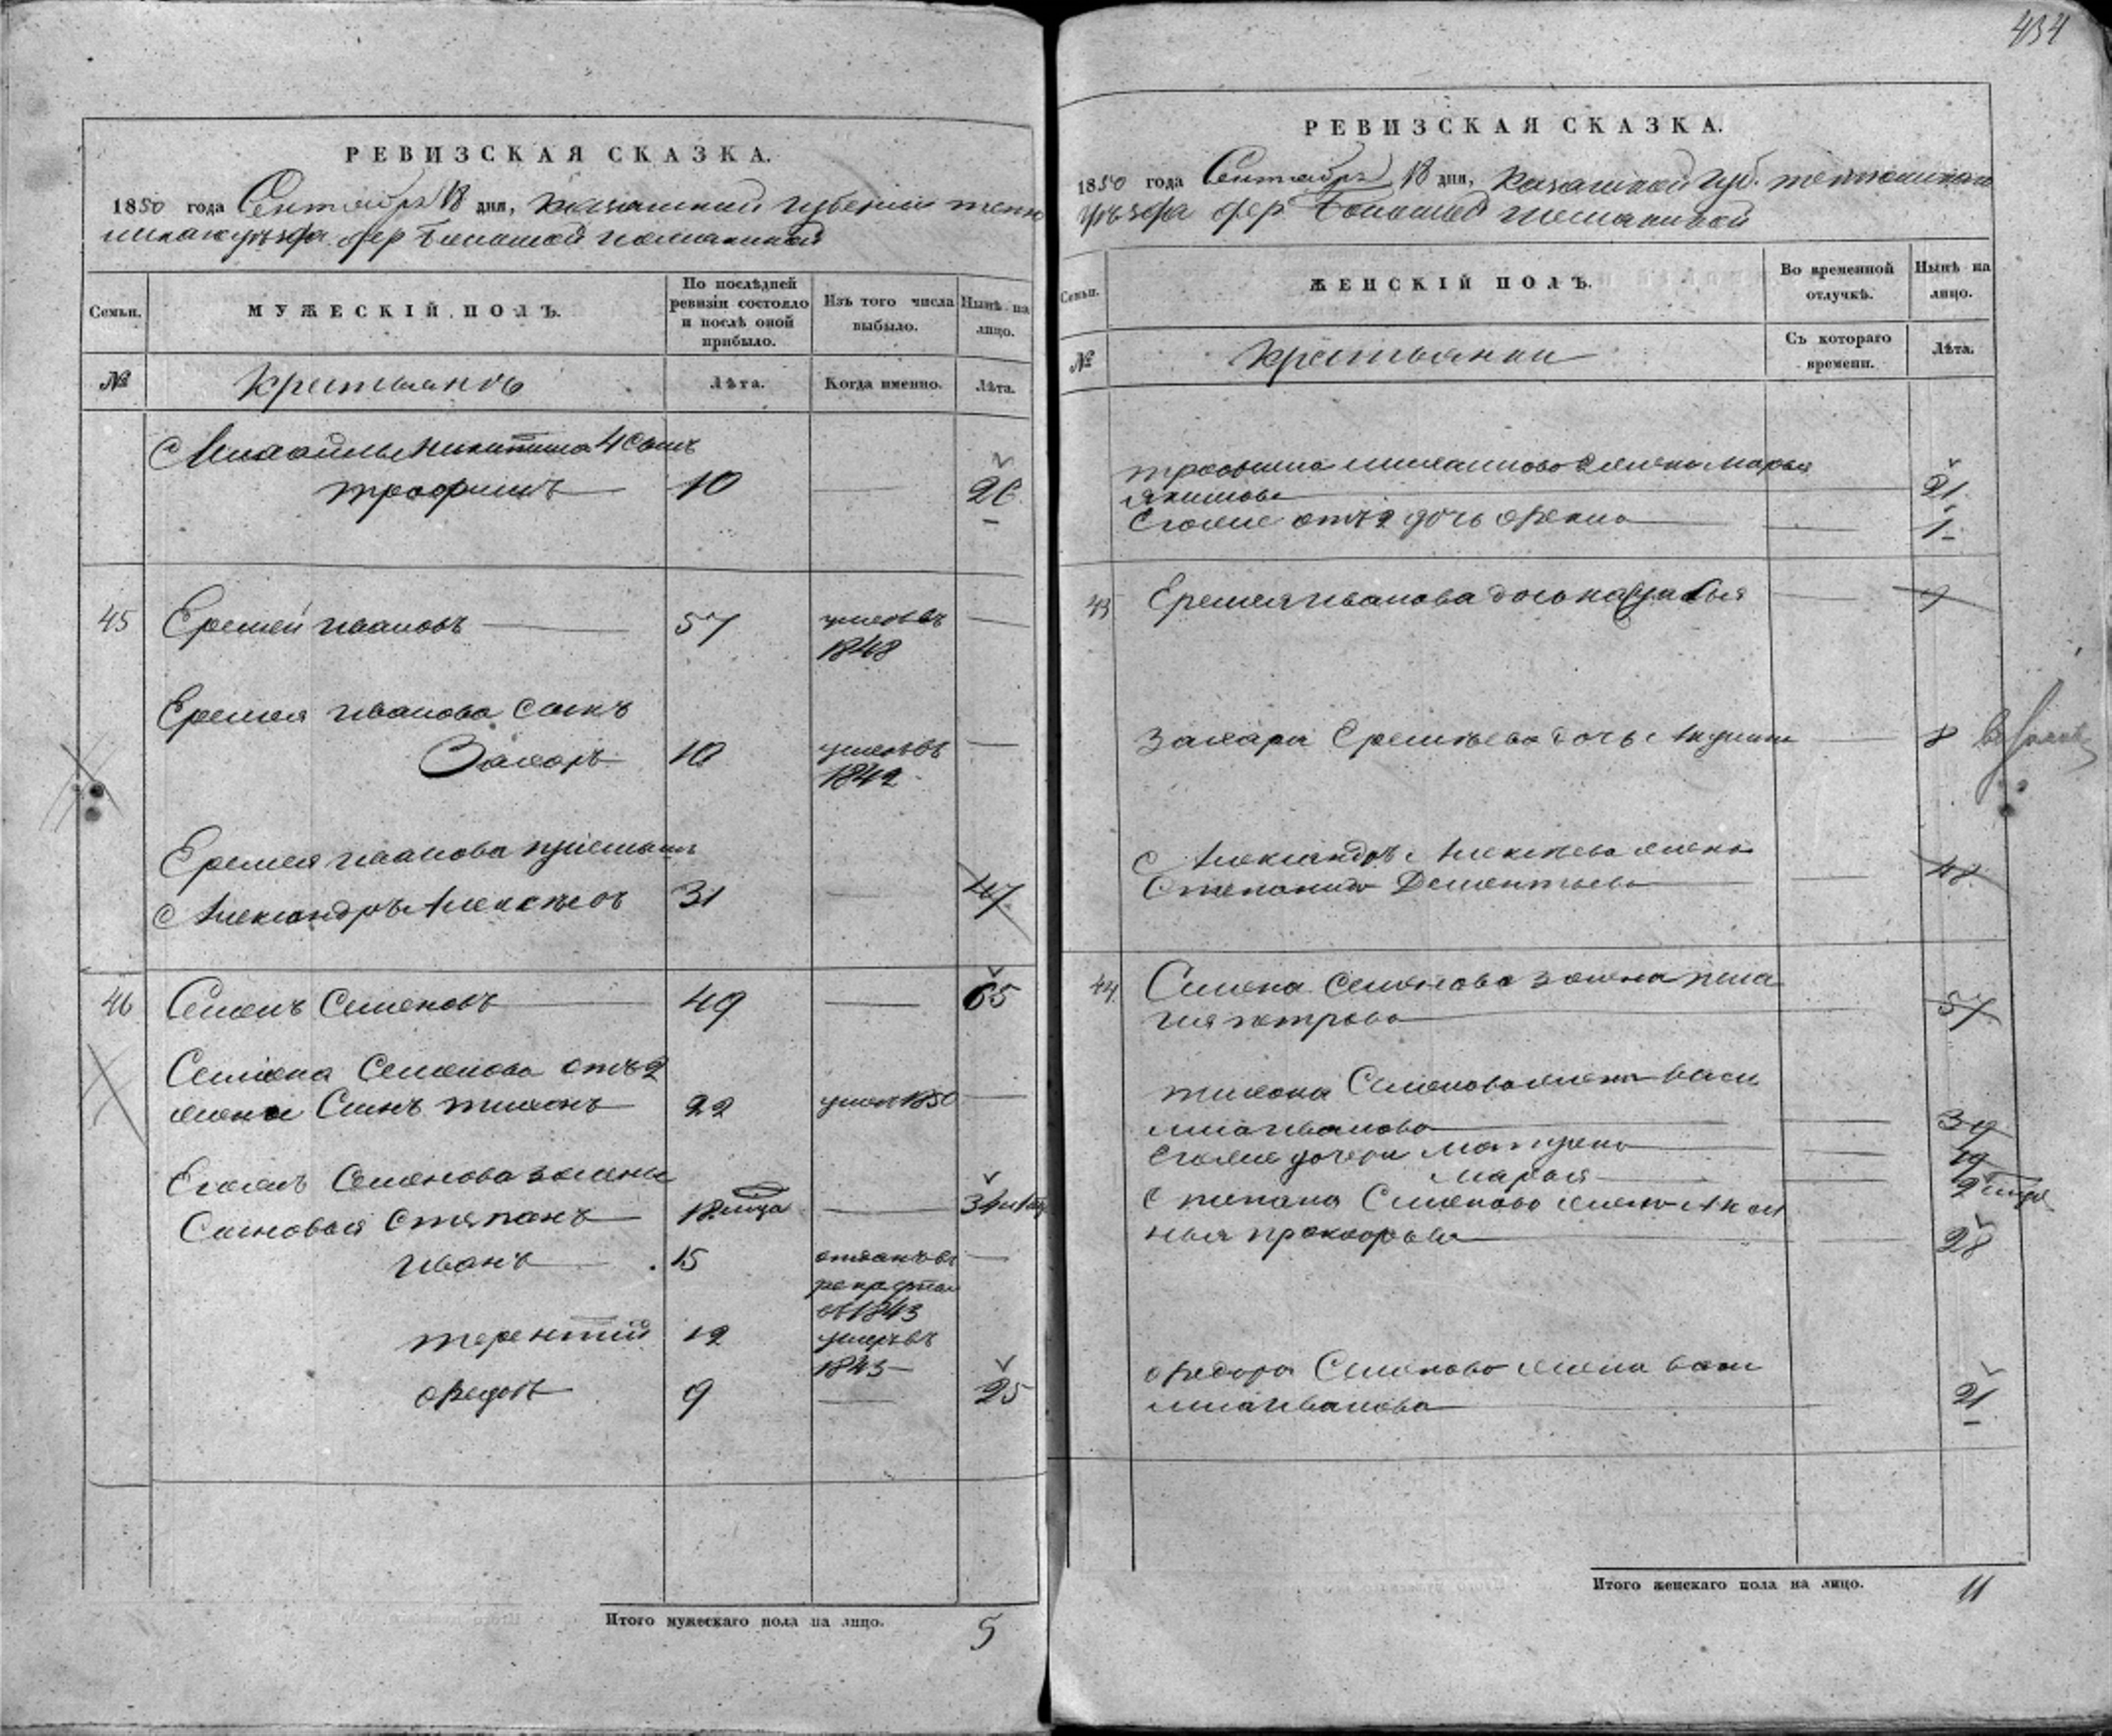 434
РЕВИЗСКАЯ СКАЗКА.
1850 года Сентября 18 дня, Казанской губернии
уѣзда дер
Семьи. МУЖЕСКІЙ ПОЛЪ. По послѣдней ревизіи состояло и послѣ оной прибыло. Изъ того числа выбыло. Нынѣ на лицо.
№ Крестьянъ Лѣта. Когда именно. Лѣта.
Михайлы Никитина 4 Сынъ
Трофимъ 10 26
45 Еремей Ивановъ 57 умеръ въ
1848
Еремея Иванова Сынъ
Захаръ 10 умеръ въ
1842
Еремея Иванова
Александръ Алексѣевъ 31 47
46 Семенъ Семеновъ 49 65
Семена Семенова отъ 2
жены Сынъ Тихонъ 22 умеръ 1850
Семенова
Сыновья Степанъ 18 34
Иванъ 15 отданъ въ
рекруты
въ 1843
Терентій 12 умеръ въ
1843
Ѳедоръ 9 25
Итого мужескаго пола на лицо. 5
РЕВИЗСКАЯ СКАЗКА.
1850 года Сентября 18 дня, Казанской губ.
уѣзда дер
Семьи. ЖЕНСКІЙ ПОЛЪ. Во временной отлучкѣ. Нынѣ на лицо.
№ Крестьянки Съ котораго времени. Лѣта.
Трофима Михайлова жена Марья
Якимова 21
Егоже отъ 2 дочь Ѳекла 1
43 Еремея Иванова дочь 9
Захара Еремѣева дочь Акулина 8
Александра Алексѣева жена
Степанида Дементьева 48
44 Семена Семенова жена Пела
гия Петрова 57
Тихона Семенова жена Васи
лиса Иванова 39
Егоже дочери Матрена 19
Марья 2
Степана Семенова жена Аксе
нья Прохорова 28
Ѳедора Семенова жена Васи
лиса Иванова 21
Итого женскаго пола на лицо. 11